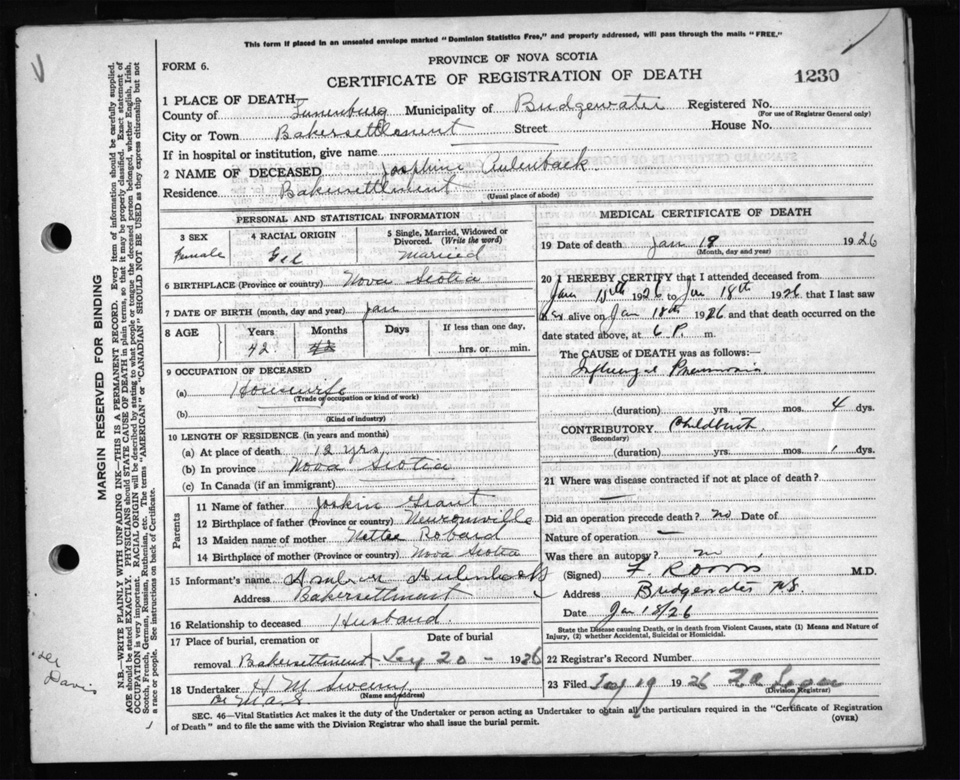 This form if placed in an unsealed envelope marked "Dominion Statistics Free," and properly addressed, will pass through the mails "FREE."
FORM 6.
PROVINCE OF NOVA SCOTIA
CERTIFICATE OF REGISTRATION OF DEATH
1230
1 PLACE OF DEATH—
County of Lunenburg Municipality of Bridgewater Registered No.
(For use of Registrar General only)
City or Town Bakersettlement Street House No.
If in hospital or institution, give name
2 NAME OF DECEASED Josephine Aulenback
Residence Bakersettlement (Usual place of abode)
PERSONAL AND STATISTICAL INFORMATION
3 SEX Female
4 RACIAL ORIGIN
5 Single, Married, Widowed or Divorced. (Write the word) Married
6 BIRTHPLACE (Province or country) Nova Scotia
7 DATE OF BIRTH (month, day and year) Jan
8 AGE Years Months Days If less than one day,
42 hrs. or min.
9 OCCUPATION OF DECEASED
(a) Housewife
(Trade or occupation or kind of work)
(b)
(Kind of industry)
10 LENGTH OF RESIDENCE (in years and months)
(a) At place of death 12 yrs
(b) In province Nova Scotia
(c) In Canada (if an immigrant)
Parents
11 Name of father Grant
12 Birthplace of father (Province or country) Newcomville
13 Maiden name of mother
14 Birthplace of mother (Province or country) Nova Scotia
15 Informant's name
Address Bakersettlment
16 Relationship to deceased Husband.
17 Place of burial, cremation or Date of burial
removal Bakersettlment 20 – 1926
18 Undertaker H M
(Name and address)
MEDICAL CERTIFICATE OF DEATH
19 Date of death Jan 18 1926
(Month, day and year)
20 I HEREBY CERTIFY that I attended deceased from
Jan 1926 to Jan 18th 1926 that I last saw
her alive on Jan 18th 1926 and that death occurred on
date stated above, at 6 P. m.
The CAUSE OF DEATH was as follows:—
Pneumonia
(duration) yrs. mos. 4 dys.
CONTRIBUTORY Childbirth
(Secondary)
(duration) yrs. mos. dys.
21 Where was disease contracted if not at place of death?
—
Did an operation precede death? no Date of
Nature of operation —
Was there an autopsy?
(Signed) M.D.
Address Bridgewater N.S.
Date Jan 18/26
State the Disease causing Death, or in death from Violent Causes, state (1) Means and Nature of Injury, (2) whether Accidental, Suicidal or Homicidal.
22 Registrar's Record Number
23 Filed 19 1926
(Division Registrar)
SEC. 46—Vital Statistics Act makes it the duty of the Undertaker or person acting as Undertaker to obtain all the particulars required in the "Certificate of Registration
of Death" and to file the same with the Division Registrar who shall issue the burial permit. (OVER)
MARGIN RESERVED FOR BINDING
N.B.—WRITE PLAINLY WITH UNFADING INK—THIS IS A PERMANENT RECORD. Every item of information should be carefully supplied.
AGE should be stated EXACTLY. PHYSICIANS should STATE CAUSE OF DEATH in plain terms, so that it may be properly classified. Exact statement of
OCCUPATION is very important. RACIAL ORIGIN will be described by stating to what people or tongue the deceased person belonged, whether English, Irish,
Scotch, French, German, Russian, Ruthenian, etc. The terms "AMERICAN" or "CANADIAN" SHOULD NOT BE USED as they express citizenship but not
a race or people. See instructions on back of Certificate.
Davis